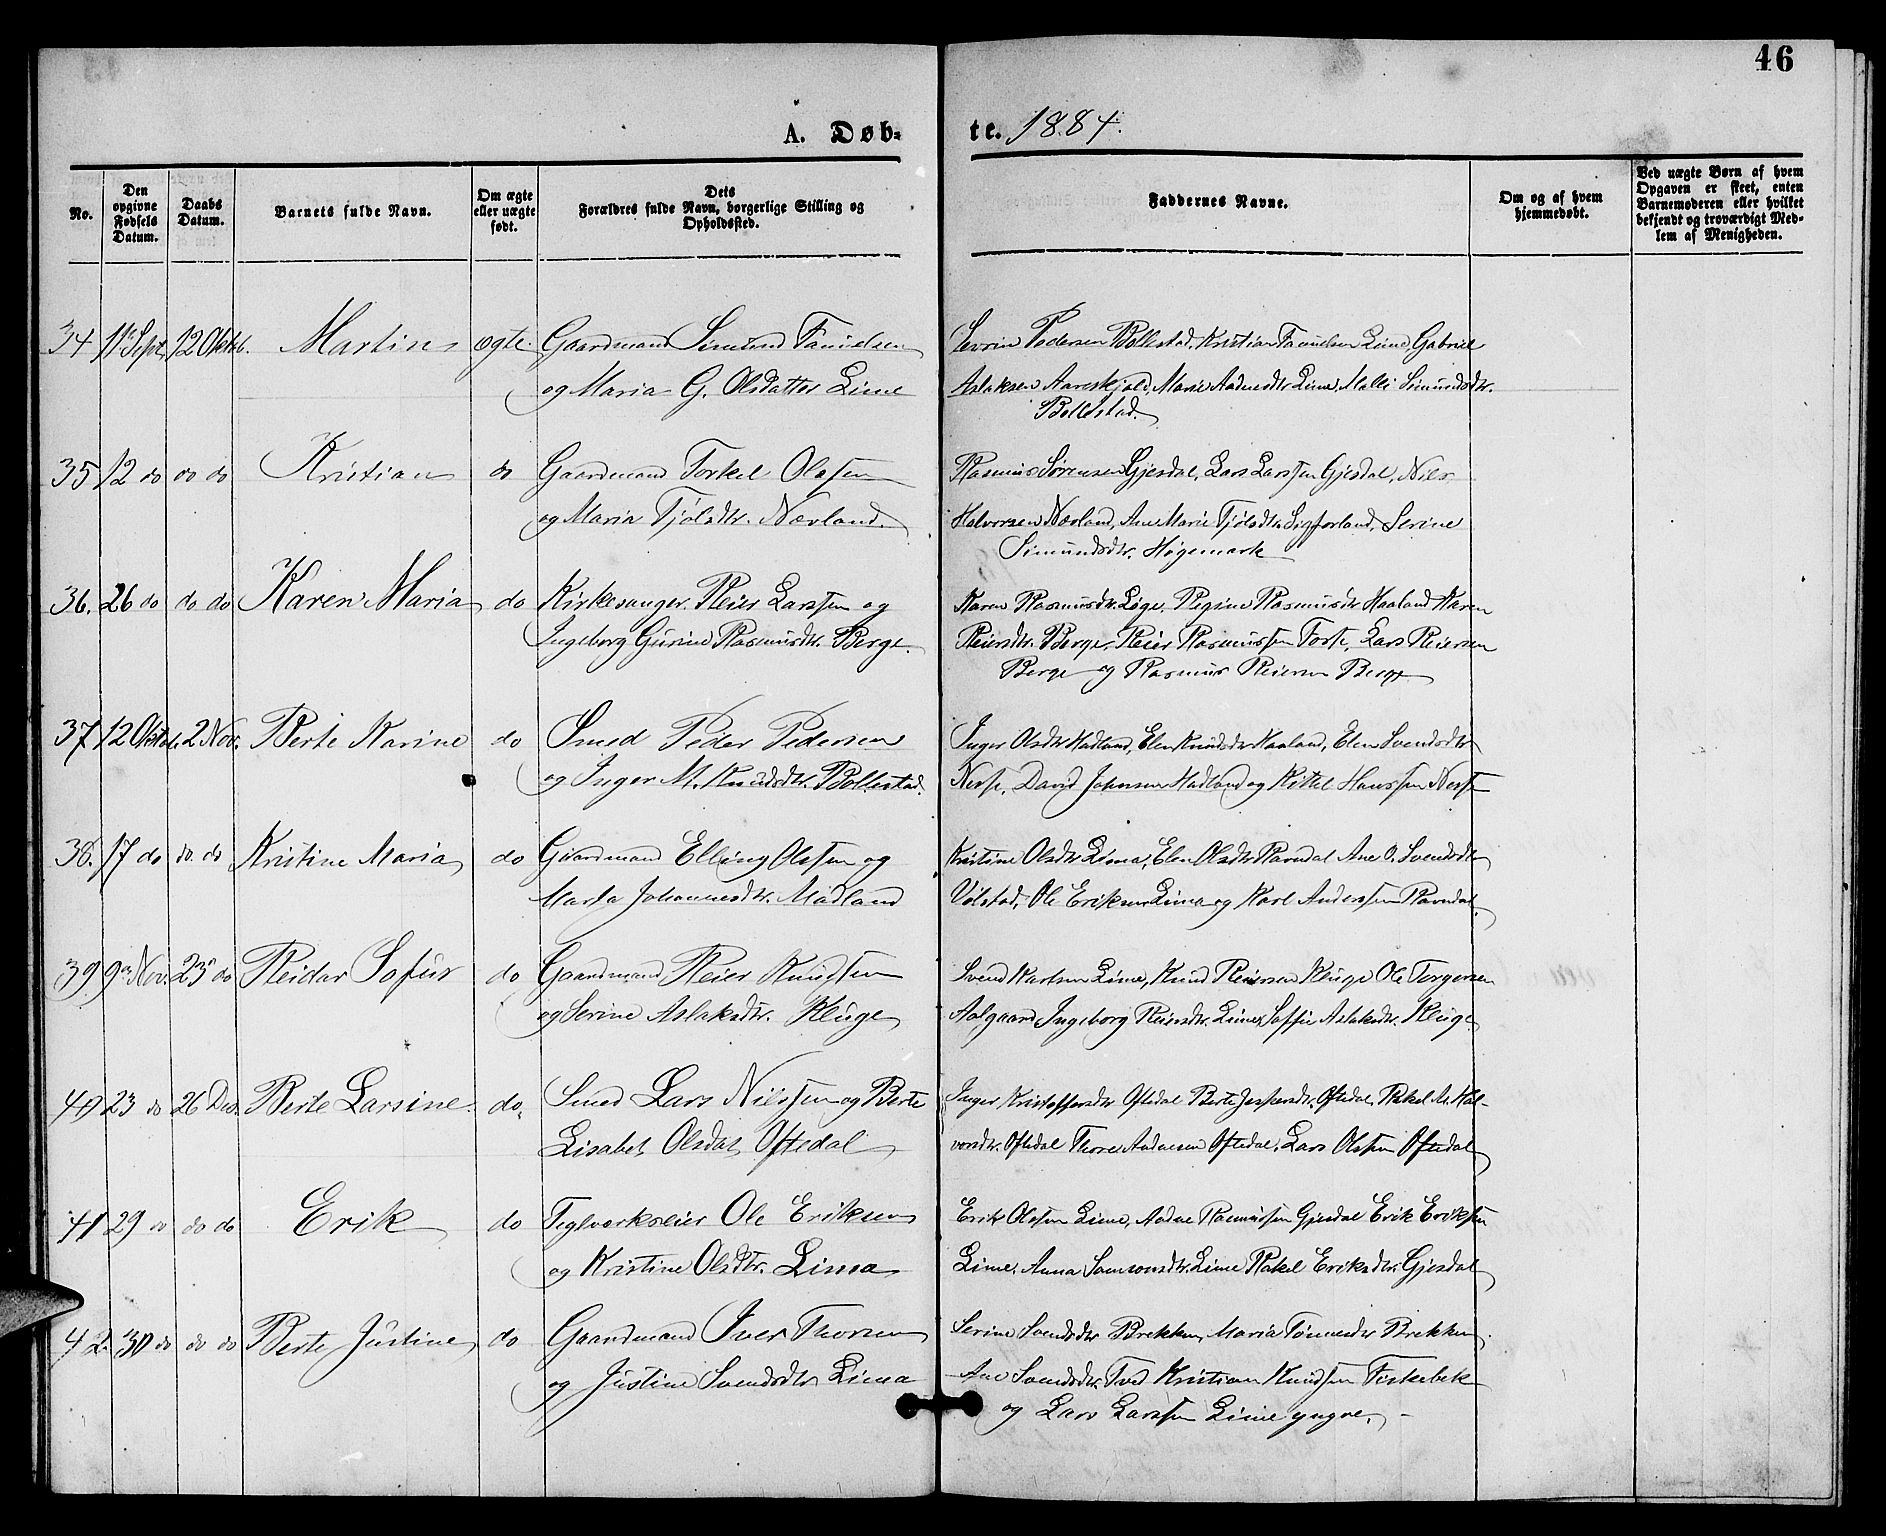 46
A. Døb=
te. 1884.
No.
Den opgivne Fødsels Datum.
Daabs Datum.
Barnets fulde Navn.
Om ægte eller uægte født.
Dets
Forældres fulde Navn, borgerlige Stilling og
Opholdssted.
Faddernes Navne.
Om og af hvem hjemmedøbt.
Ved uægte Børn af hvem
Opgaven er skeet, enten
Barnemoderen eller hvilket
bekjendt og troværdigt Med-
lem af Menigheden.
34 11te Sept. 12 Oktob. Martin ægte. Gaardmand Simund Tanielsen
og Maria G. Olsdatter Lime
Sevrin Pedersen Bollestad, Kristian Tanielsen Lime, Gabriel
Aslaksen Aareskjold, Marie Aadnesdtr. Lime, Malli Simundsdtr.
Bollestad.
35 12 do do do Kristian do Gaardmand Torkel Olsen
og Maria Tjølsdtr. Nævland.
Rasmus Sørensen Gjesdal, Lars Larssen Gjesdal, Niels
Halvorsen Nævland, Ane Marie Tjølsdtr. Serine
Simundsdtr. Høgemark
36. 26 do do do Karen Maria do Kirkesanger Reier Larssen og
Ingeborg Gurine Rasmusdtr. Berge.
Karen Rasmusdtr. Løge, Regine Rasmusdtr. Haaland Karen
Reiersdtr. Berge, Reier Rasmussen Lars Reiersen
Berge og Rasmus Reiersen Berge
37 12 Oktob. 2 Nov. Berte Karine do Smed Peder Pedersen
og Inger M. Knudsdtr. Bollestad.
Inger Olsdtr. Madland, Elen Knudsdtr. Haaland, Elen Svendsdtr.
Nesse, David Johnsen Madland og Kittel Hanssen Nesse
38. 17 do do. do Kristine Maria do Gaardmand Elling Olssen og
Marta Johannesdtr. Madland
Kristine Olsdtr. Lima, Elen Olsdtr. Ravndal Ane O. Svendsdtr.
Ole Eriksen Lima og Karl Anderssen Ravndal.
39 9de Nov. 23 do Reidar Sofus do Gaardmand Reier Knudssen
og Serine Aslaksdtr. Kluge
Svend Karlsen Lime, Knud Reiersen Kluge Ole Torgersen
Aalgaard Ingeborg Reiersdtr. Lime, Sofie Aslaksdtr. Kluge
40 23 do 26 Des. Berte Larsine. do. Smed Lars Nilssen og Berte
Lisabet Olsdat. Oftedal
Inger Kristoffersdtr. Oftedal Berte Jespersdtr. Oftedal, Rakel M. Hal-
vorsdtr. Oftedal Thore Aadnesen Oftedal, Lars Olssen Oftedal
41 29 do do do Erik do Teglværkseier Ole Eriksen
og Kristine Olsdtr. Lima
Erik Olssen Lime, Aadne Rasmussen Gjesdal Erik Erikssen
Lime, Anna Samsonsdtr. Lime Rakel Eriksdtr. Gjesdal
42. 30 do do do Berte Justine do Gaardmand Iver Thorsen
og Justine Svendsdtr. Lima
Serine Svendsdtr. Brekken, Maria Tønnesdtr. Brekken
Ane Svendsdtr. Tved Kristian Knudssen Fiskebek
og Lars Larssen Lime yngre.